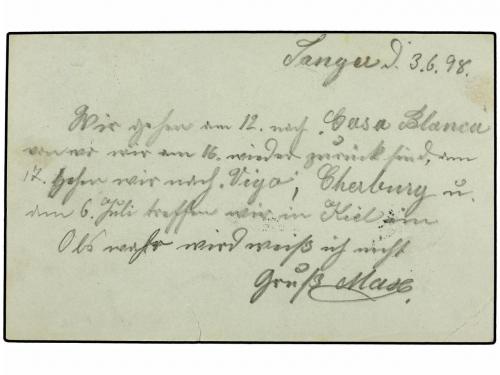 Tanger d. 3.6.98.
Wir gehen am 12. nach Casa Blanca
von wo wir am 16. wieder zurück sind, am
17. gehen wir nach Vigo, Cherburg u.
am 6. Juli treffen wir in Kiel ein
Obs wahr wird weiß ich nicht
Gruß Max.